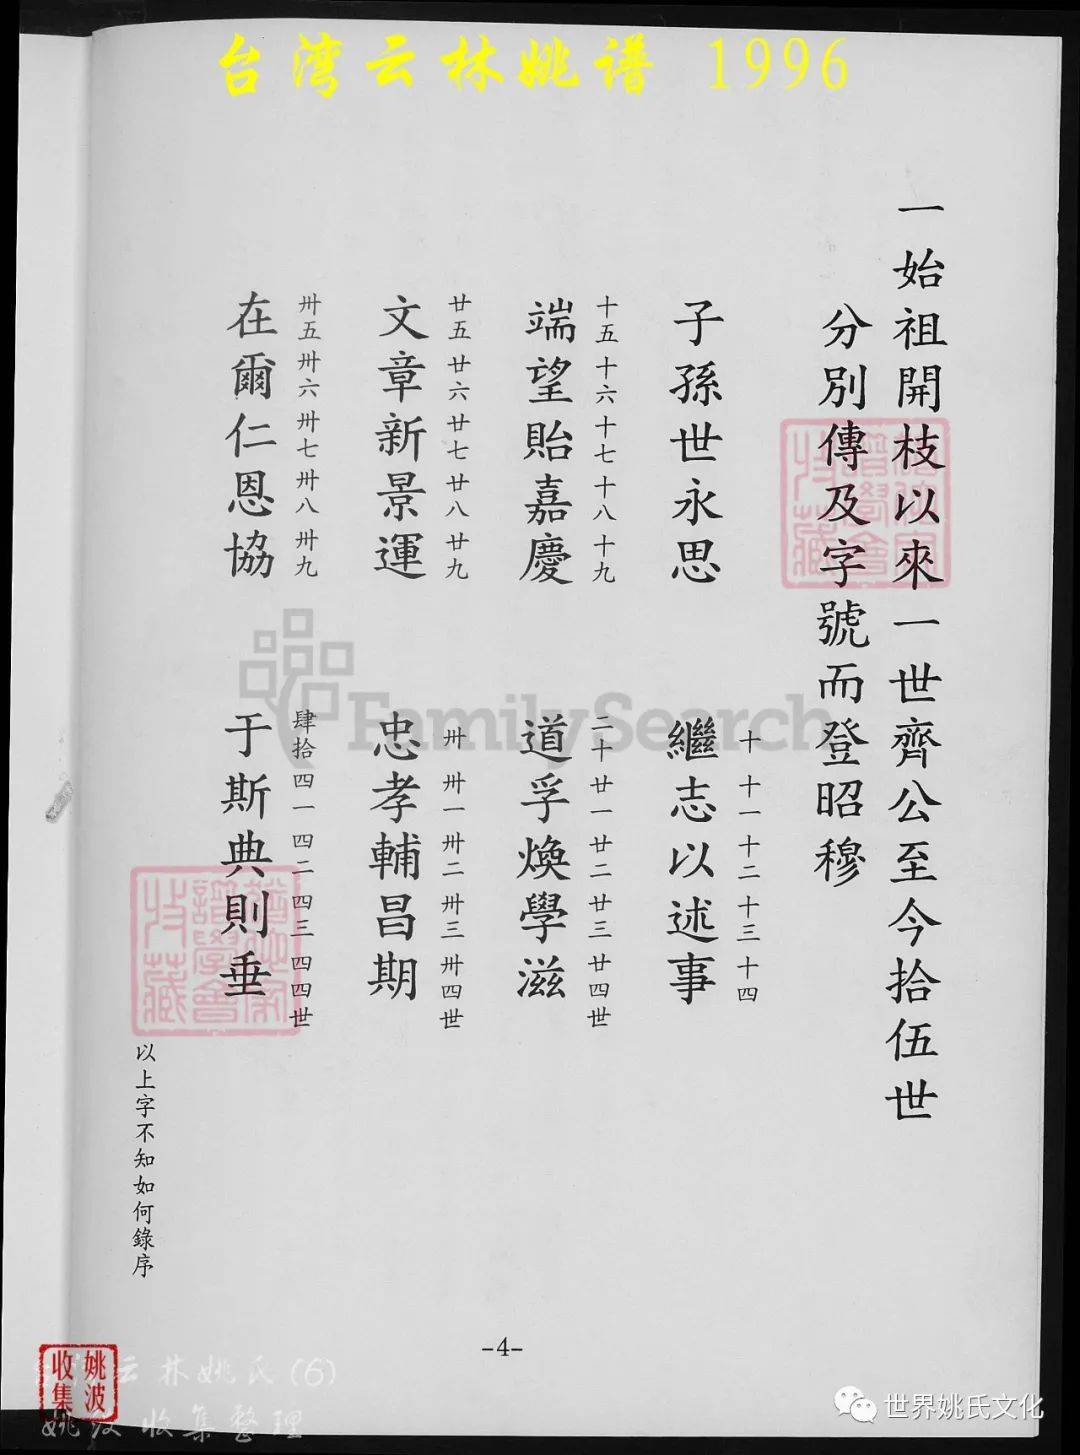 台湾云林姚谱 1996
一始祖開枝以來一世齊公至今拾伍世
分別傳及字號而登昭穆
子孫世永思
十 十一 十二 十三 十四
繼志以述事
十五 十六 十七 十八 十九
端望貽嘉慶
二十 廿一 廿二 廿三 廿四世
道孚煥學滋
廿五 廿六 廿七 廿八 廿九
文章新景運
卅 卅一 卅二 卅三 卅四世
忠孝輔昌期
卅五 卅六 卅七 卅八 卅九
在爾仁恩協
肆拾 四一 四二 四三 四四世
于斯典則垂
以上字不知如何錄序
FamilySearch
-4-
云林姚氏(6)
姚波收集整理
姚波
收集
世界姚氏文化